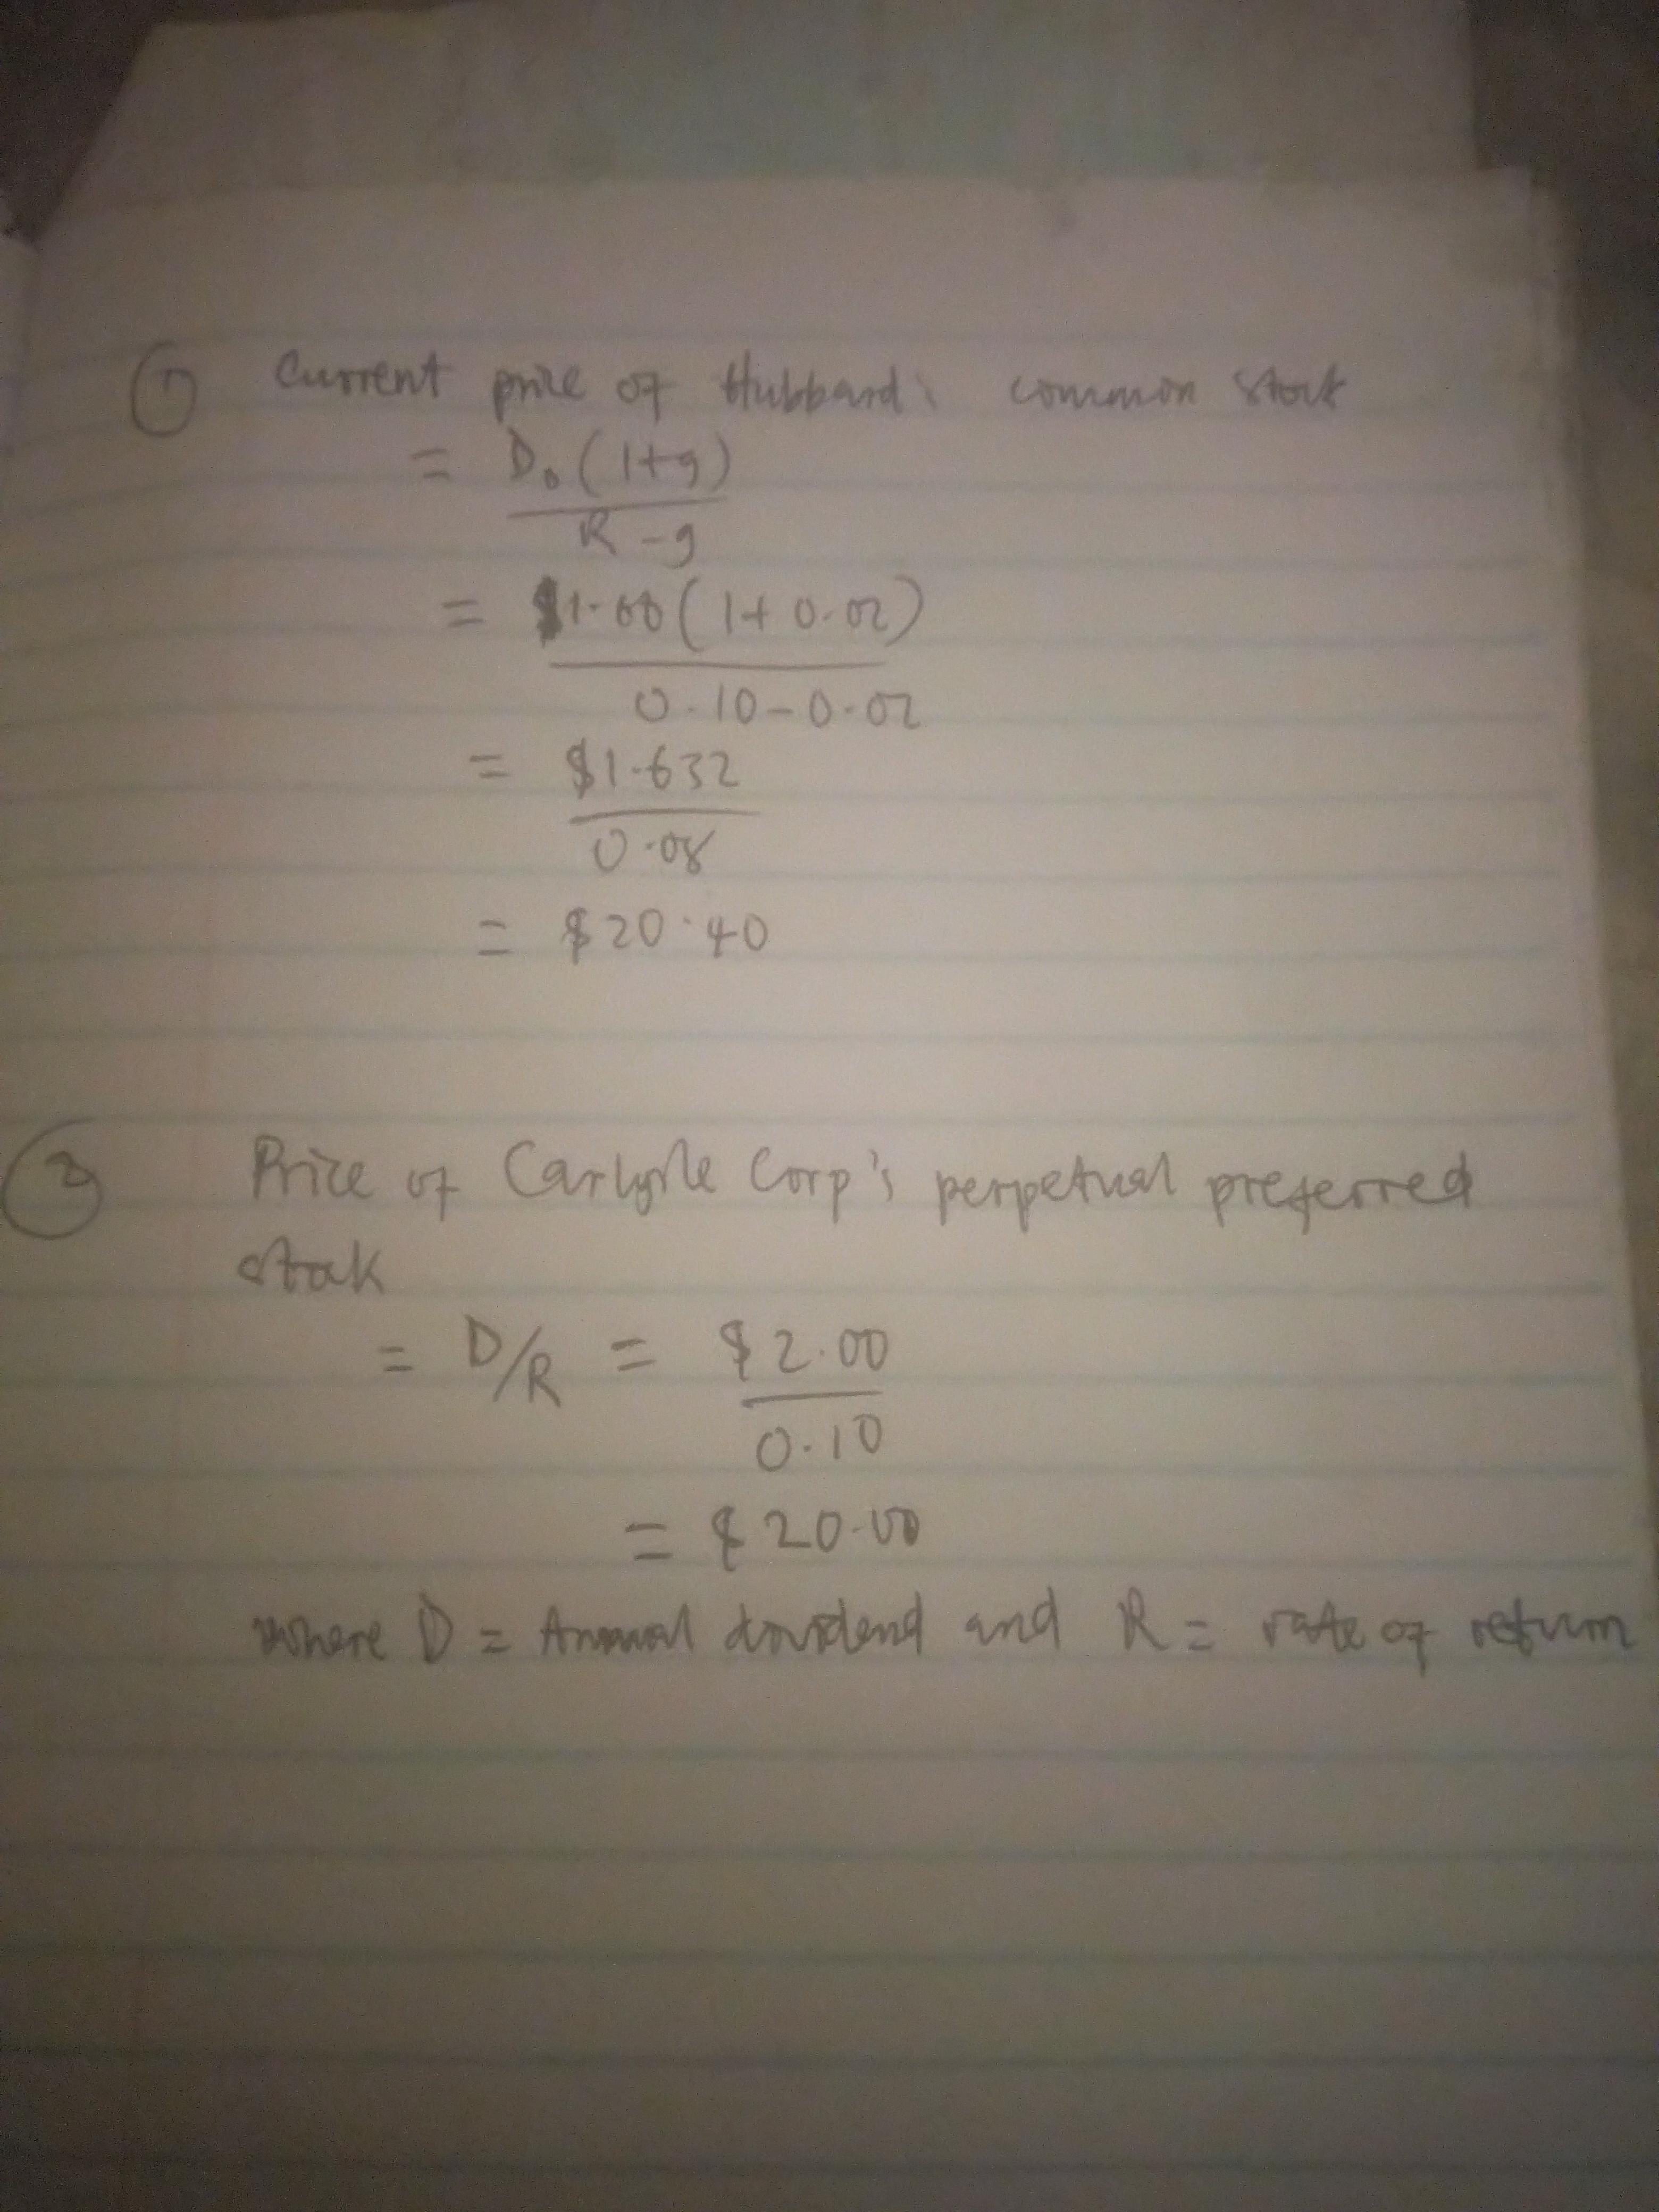 ① Current price of Hubbard's common stock
= D₀(1+g)
R-g
= $1.60(1+0.02)
0.10-0.02
= $1.632
0.08
= $20.40
② Price of Carlyle Corp's perpetual preferred
stock
= D/R = $2.00
0.10
= $20.00
where D = Annual dividend and R = rate of return